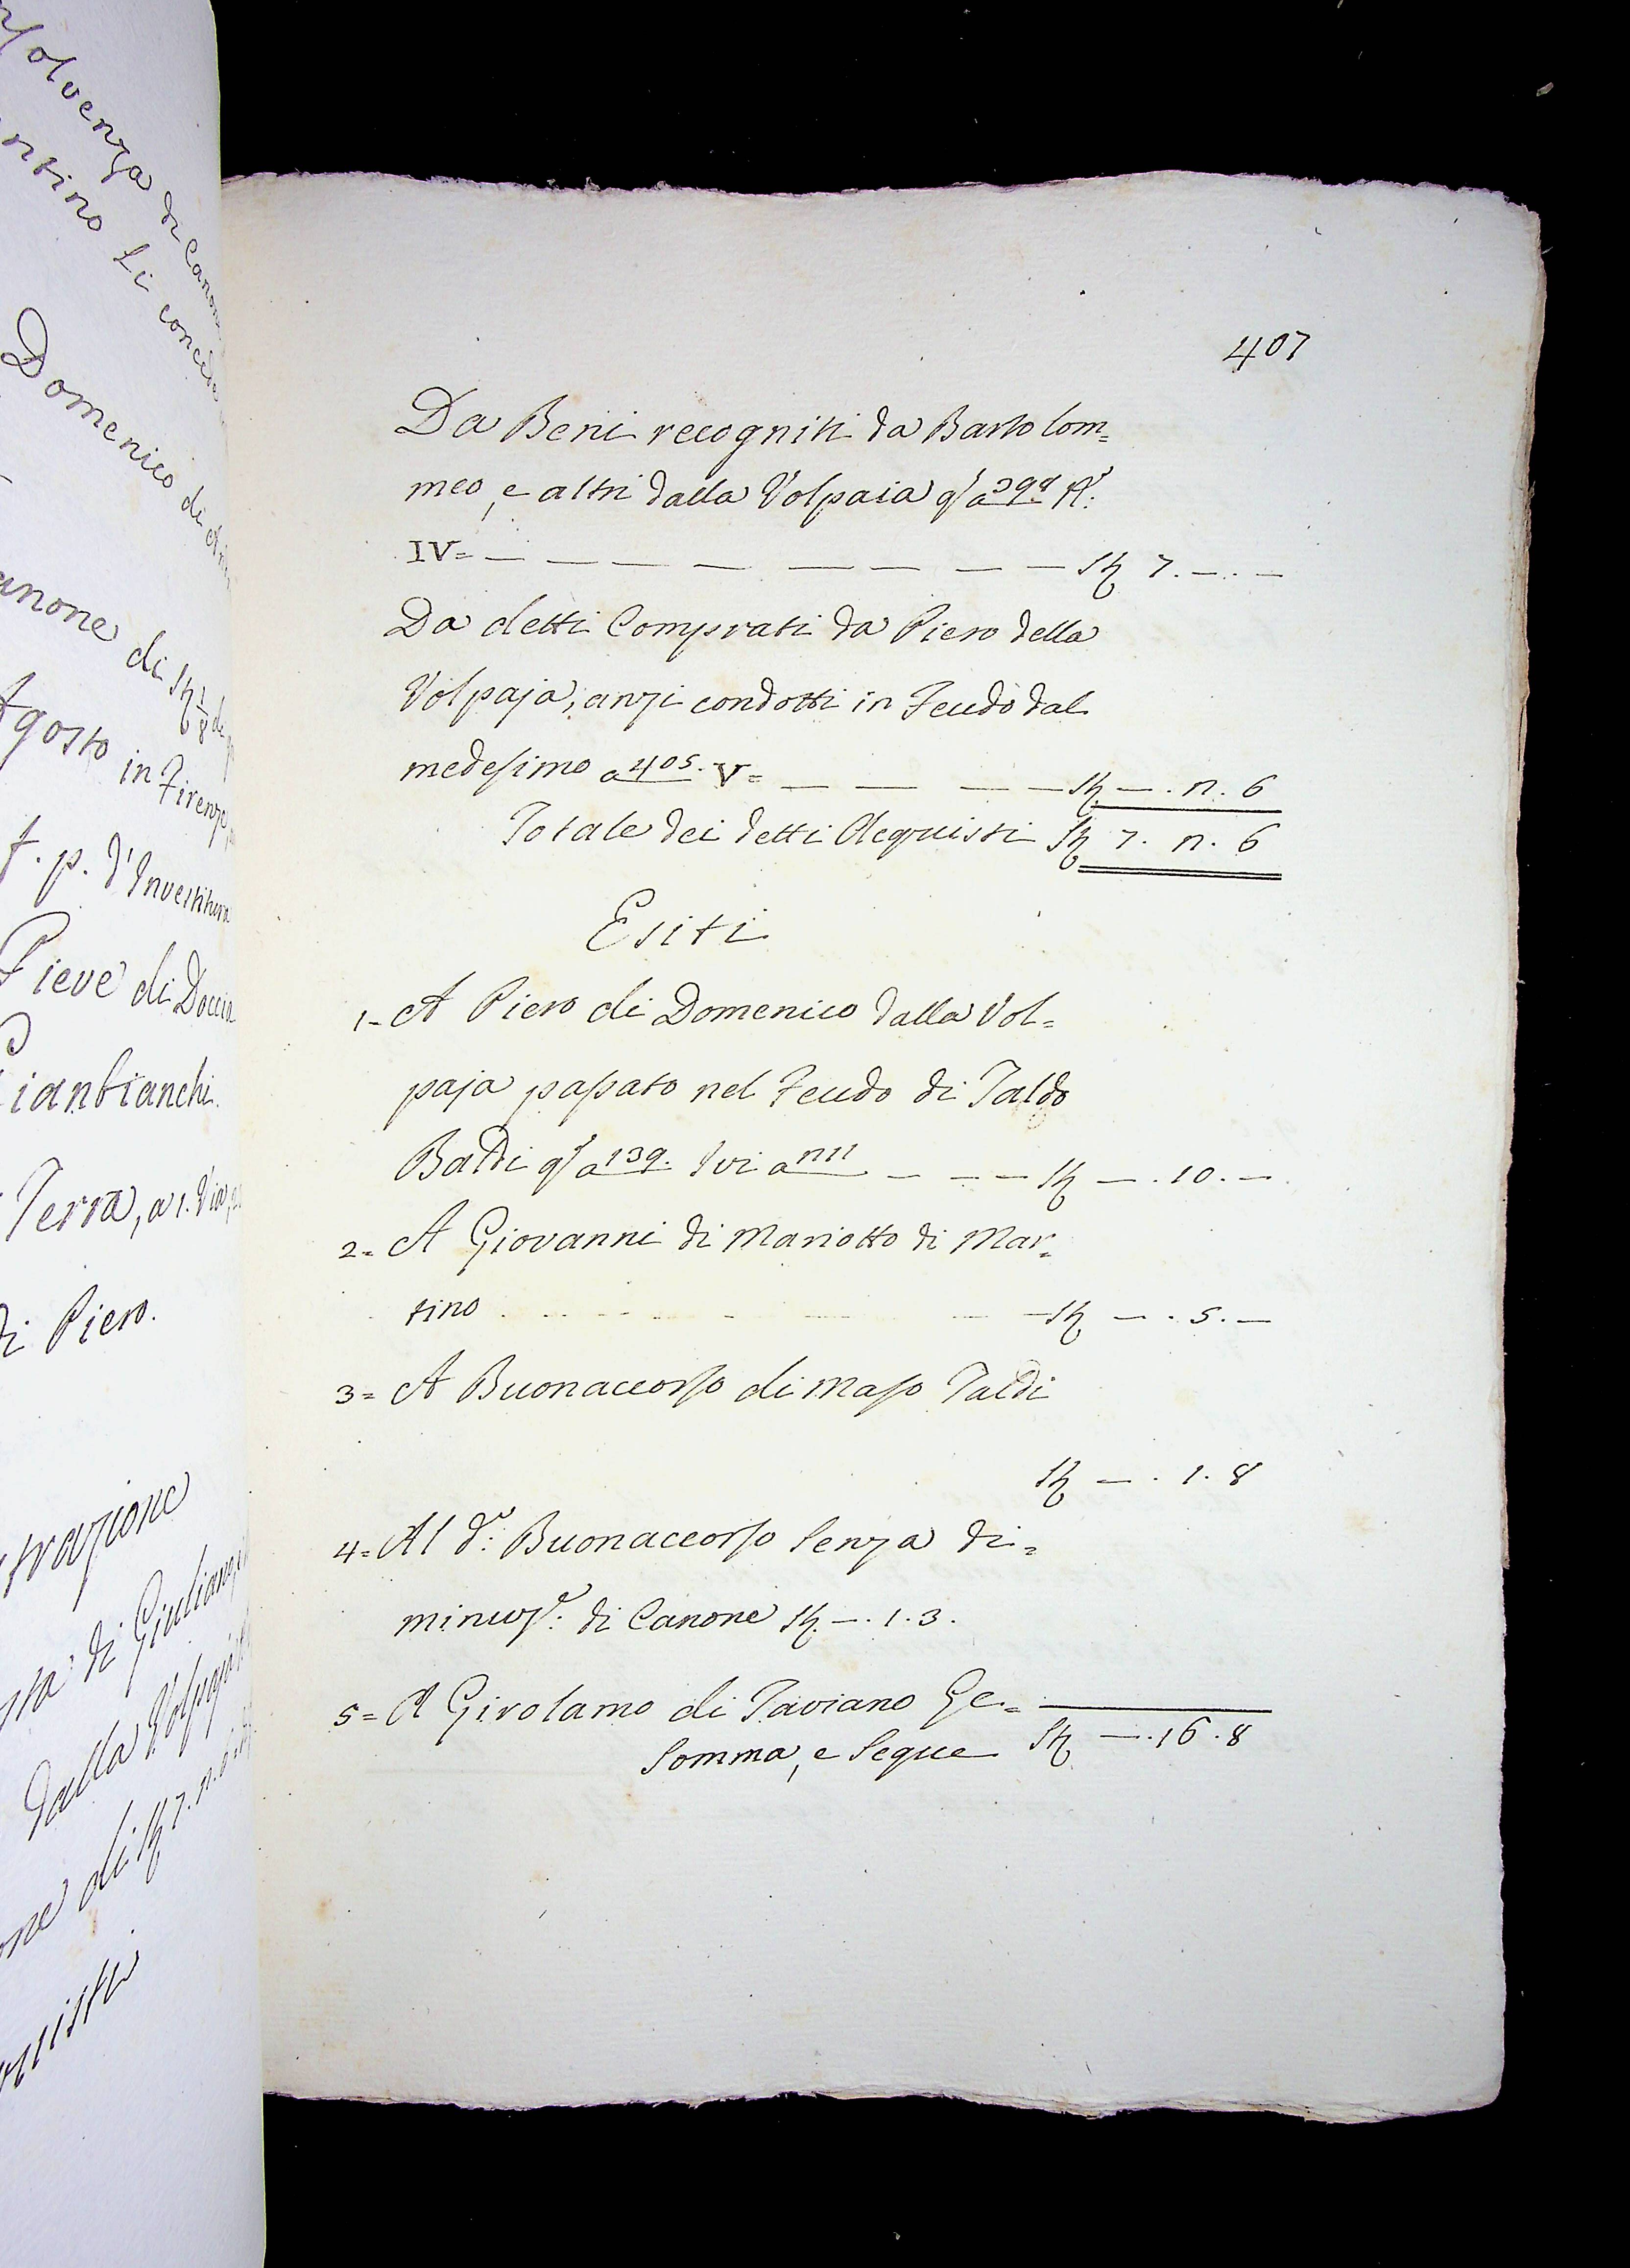 olvenza di Canon
ntino si concede
Domenico di
anone di St 1/8 de
Agosto in Firenze,
f. p. d'Investitura
Pieve di Doccia
ianbianchi.
Terra, a 1. Via,
di Piero.
trazione
sta di Giuliano
dalla Volpaja
one di St 7. 11. 6
quisti
407
Da Beni recogniti da Bartolom=
meo, e altri dalla Volpaia qo a 399 R.
IV= — — — — — — — — St 7. —. —
Da detti Comprati da Piero della
Volpaja, anzi condotti in Feudo dal
medesimo a 405. V= — — — — St —. 11. 6
Totale dei detti Acquisti St 7. 11. 6
Esiti
1- A Piero di Domenico dalla Vol=
paja passato nel Feudo di Taldo
Baldi qo a 139. Ivi a 1111 — — — St —. 10. —
2= A Giovanni di Mariotto di Mar=
tino — St —. 5. —
3= A Buonaccorso di Maso Taldi
St —. 1. 8
4= Al do: Buonaccorso senza di=
minuze: di Canone St. —. 1. 3.
5= A Girolamo di Taviano Ge=
Somma, e segue St —. 16. 8